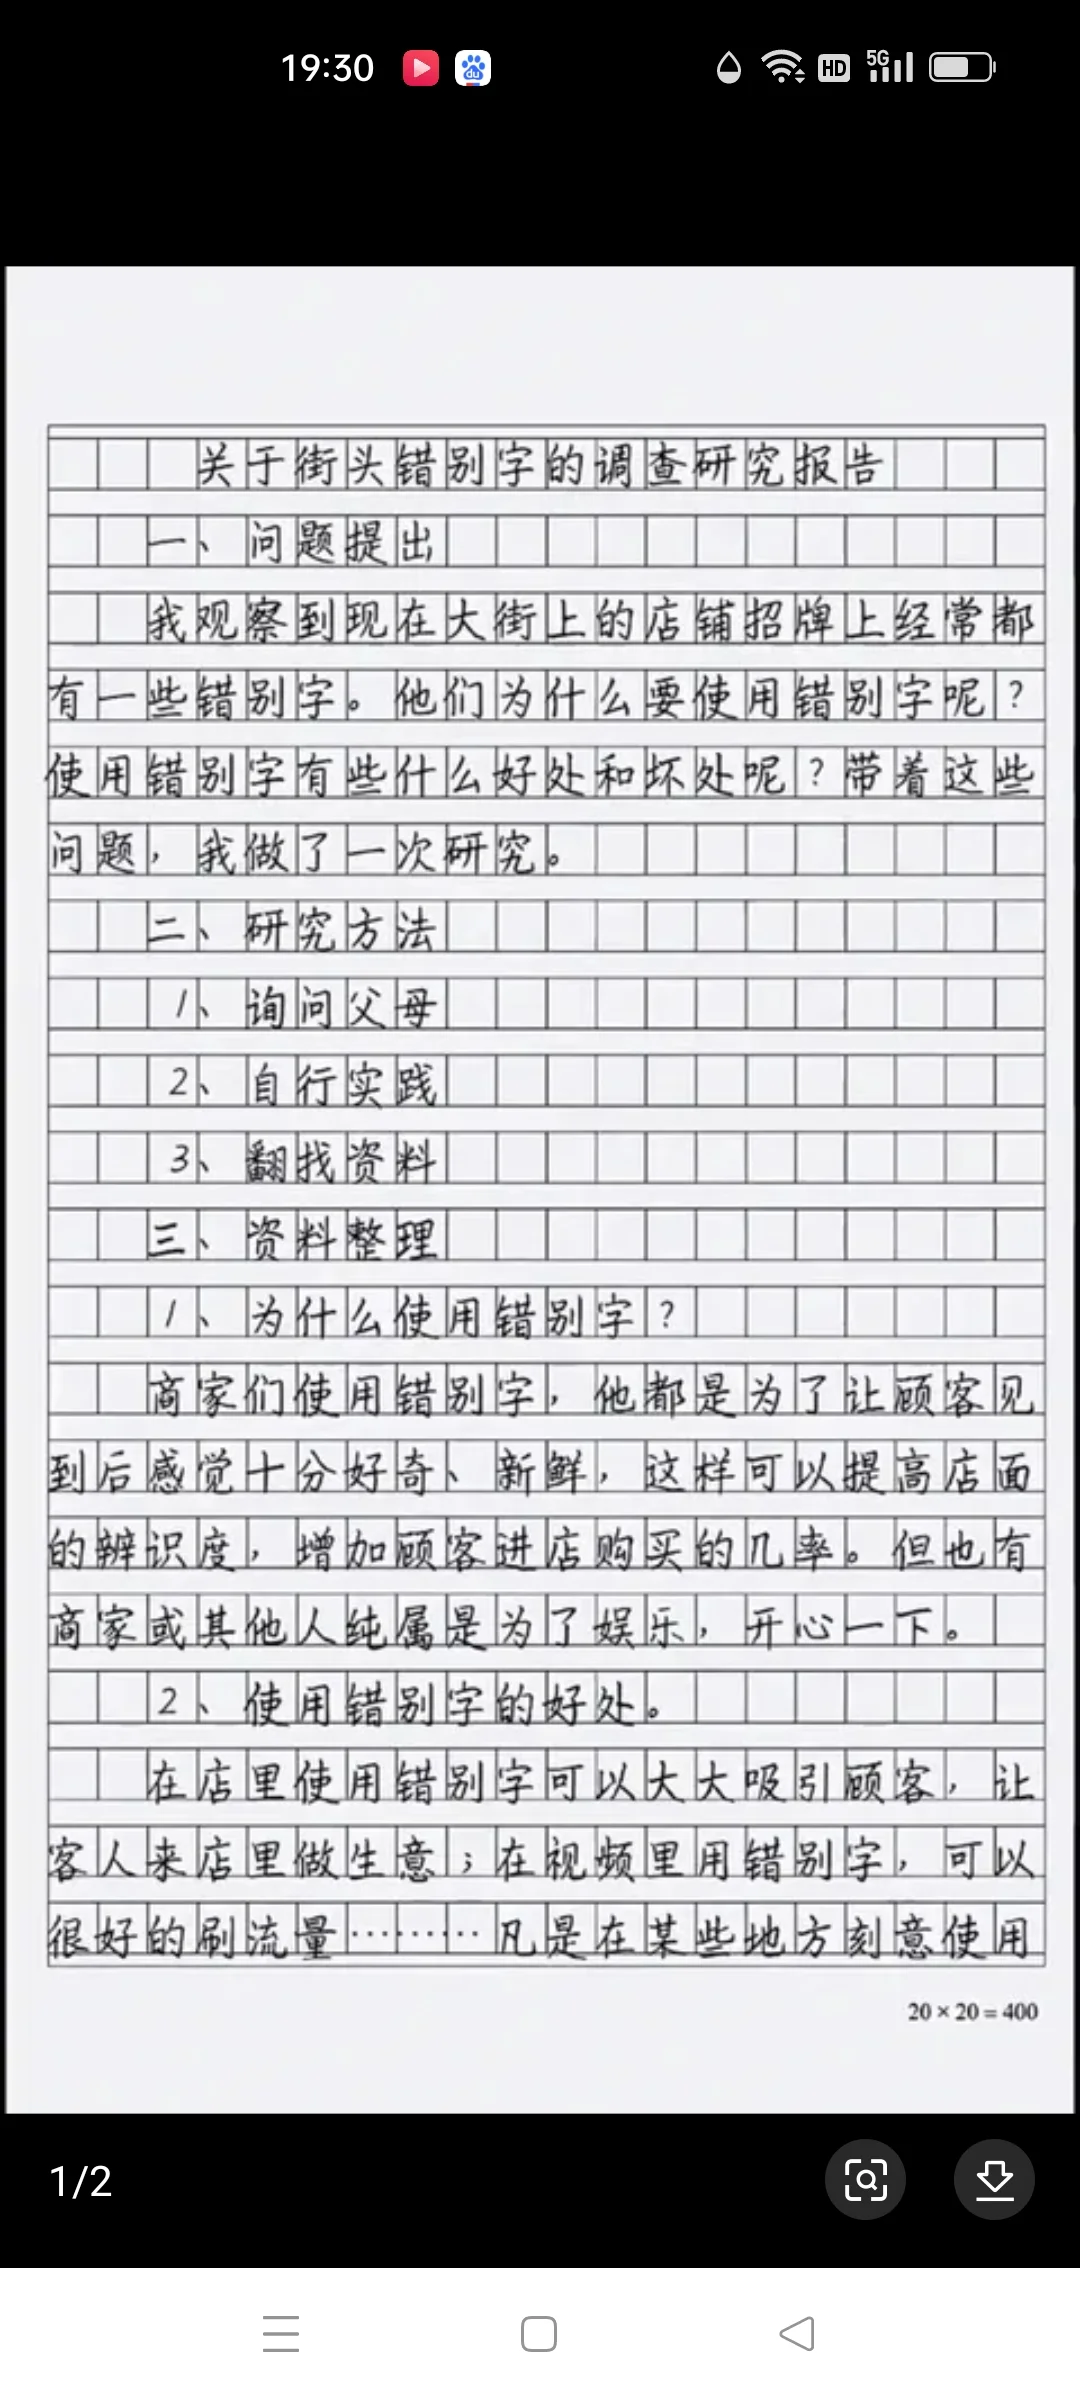 19:30
du
HD
5G
关于街头错别字的调查研究报告
一、问题提出
我观察到现在大街上的店铺招牌上经常都
有一些错别字。他们为什么要使用错别字呢?
使用错别字有些什么好处和坏处呢?带着这些
问题,我做了一次研究。
二、研究方法
1、询问父母
2、自行实践
3、翻找资料
三、资料整理
1、为什么使用错别字?
商家们使用错别字,他都是为了让顾客见
到后感觉十分好奇、新鲜,这样可以提高店面
的辨识度,增加顾客进店购买的几率。但也有
商家或其他人纯属是为了娱乐,开心一下。
2、使用错别字的好处。
在店里使用错别字可以大大吸引顾客,让
客人来店里做生意;在视频里用错别字,可以
很好的刷流量………凡是在某些地方刻意使用
20×20=400
1/2